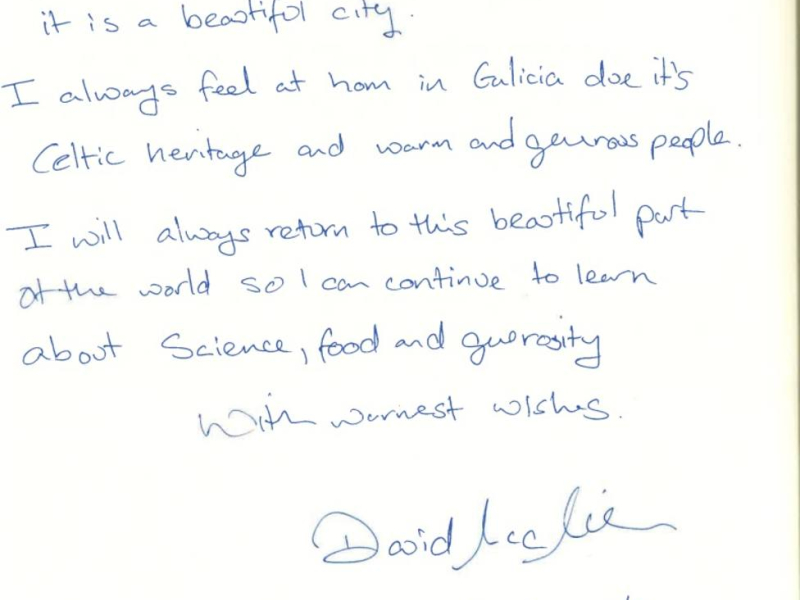 it is a beautiful city.
I always feel at hom in Galicia doe it's
Celtic heritage and warm and generous people.
I will always return to this beautiful part
of the world so I can continue to learn
about Science, food and guerosity
With warmest wishes.
David